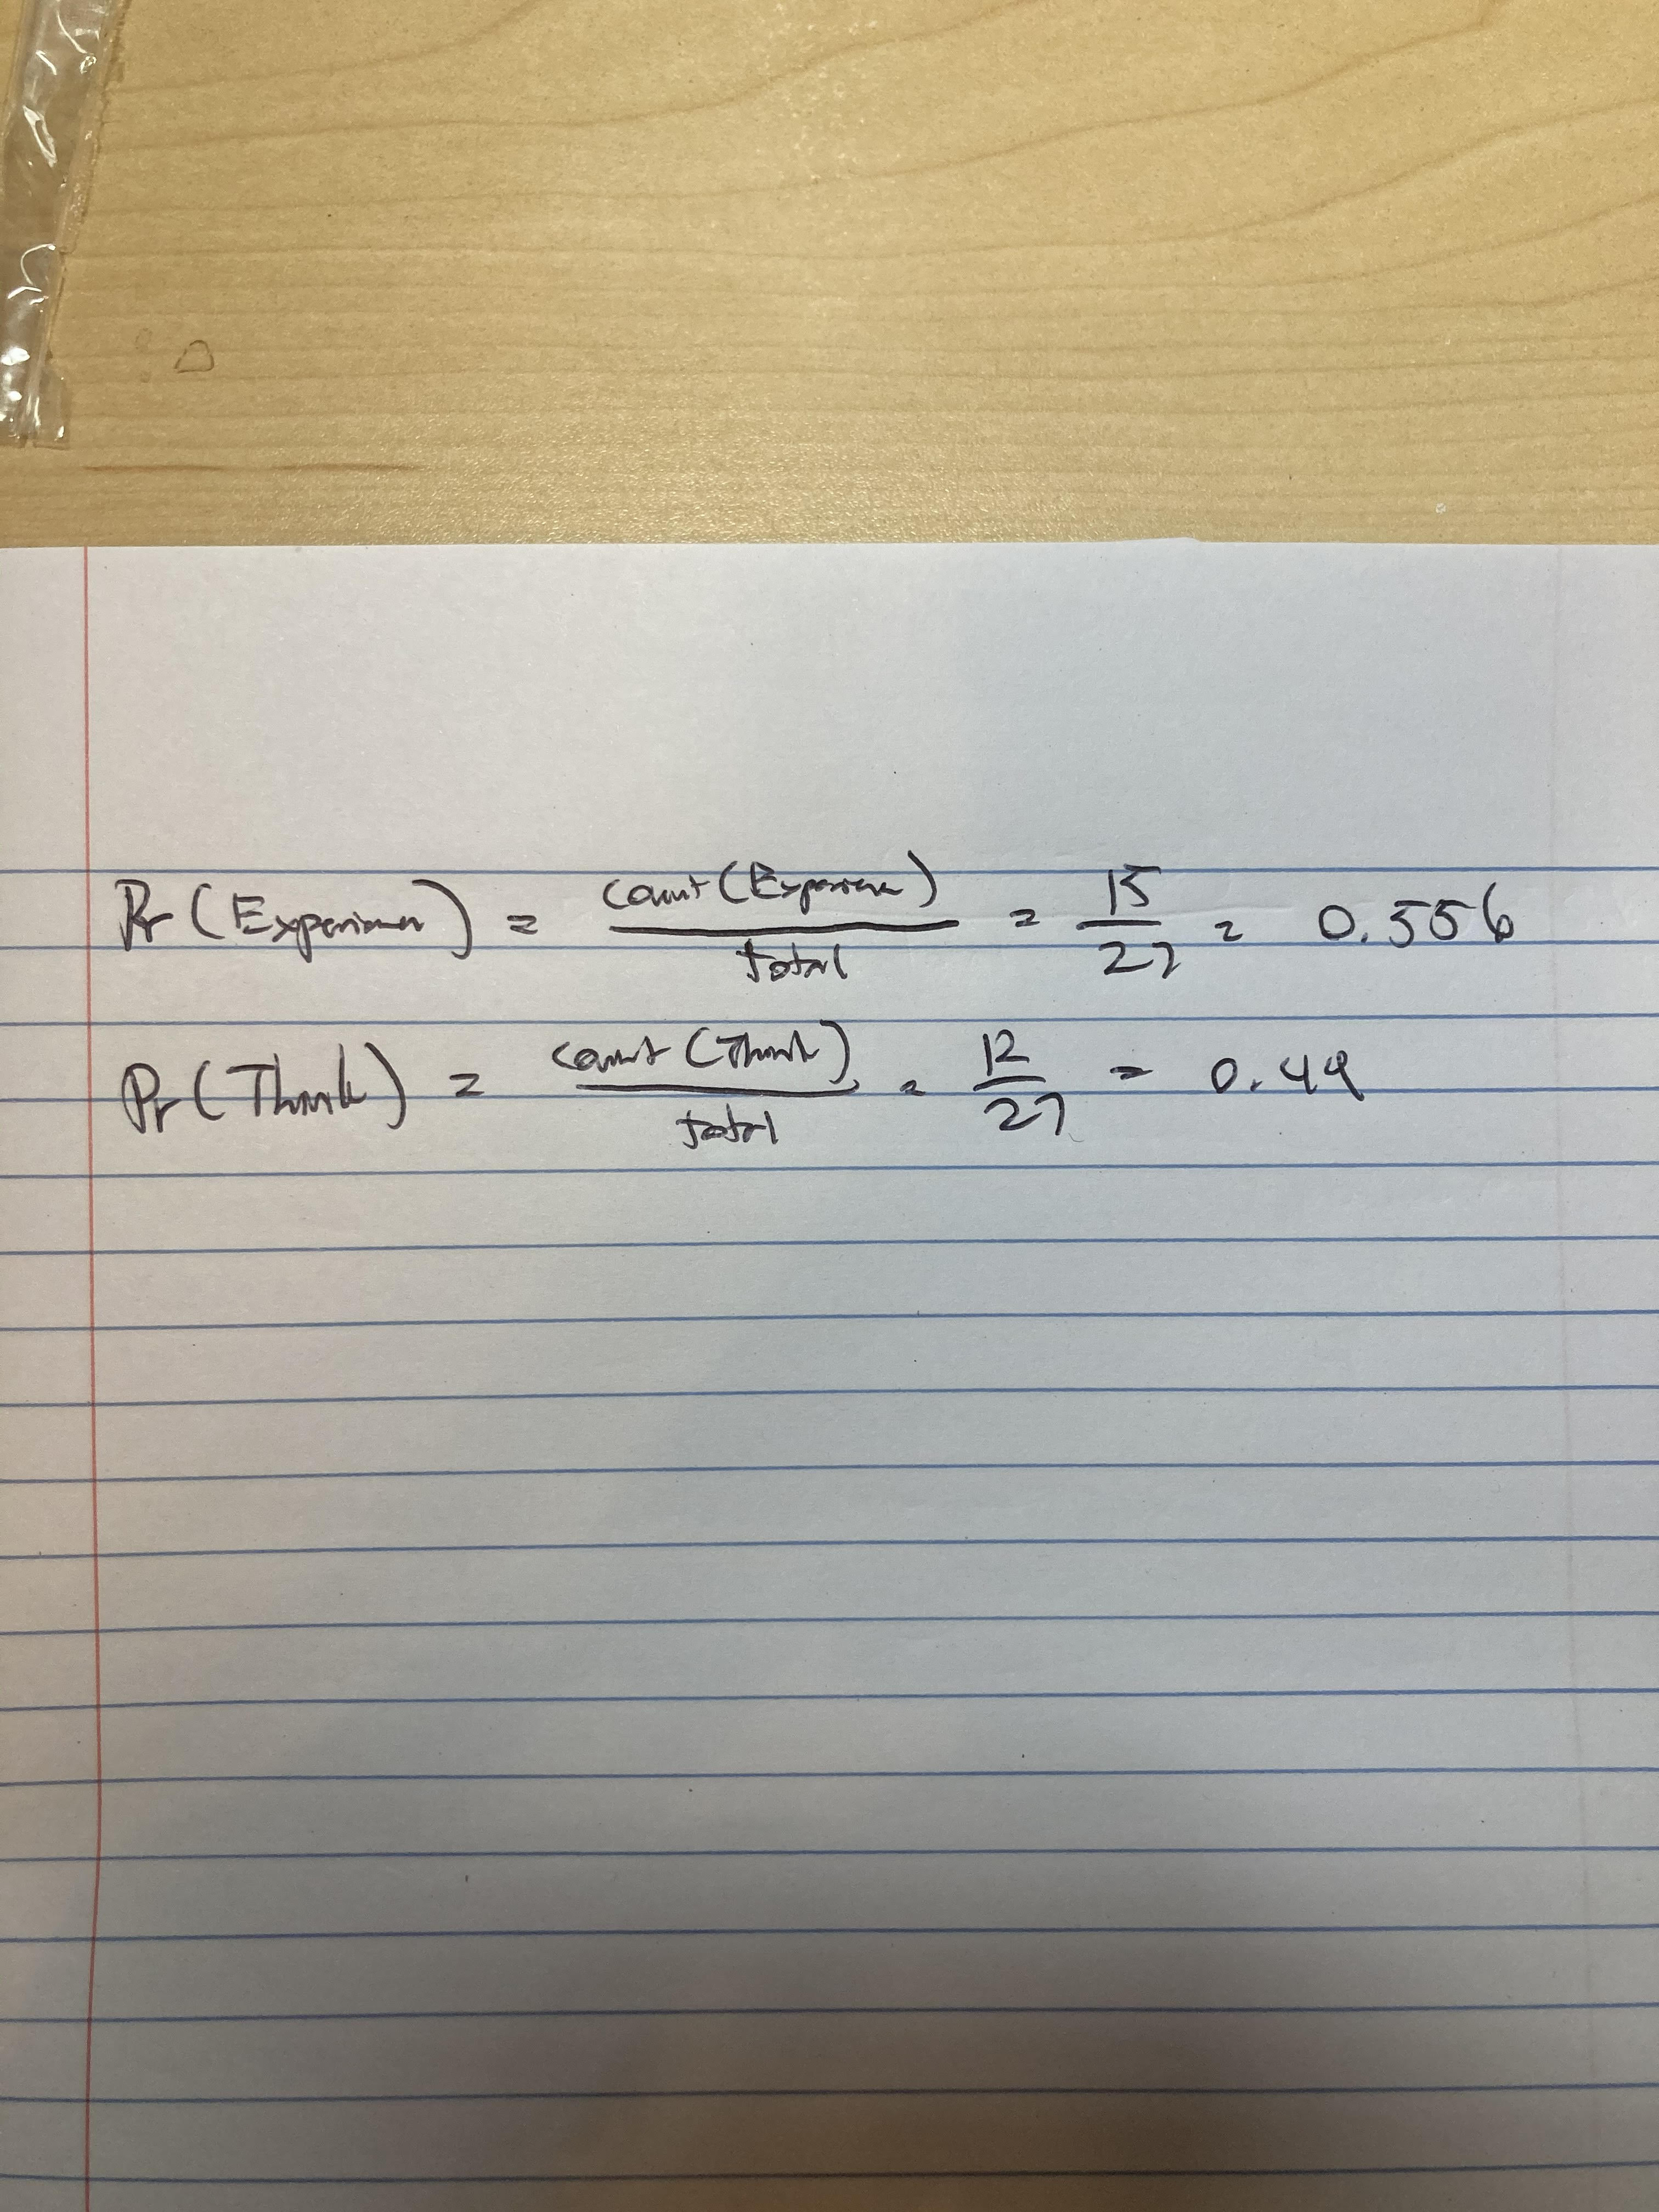 Pr(Experiencer) = count(Experiencer) / total = 15/27 = 0.556
Pr(Think) = count(Think) / total = 12/27 = 0.44